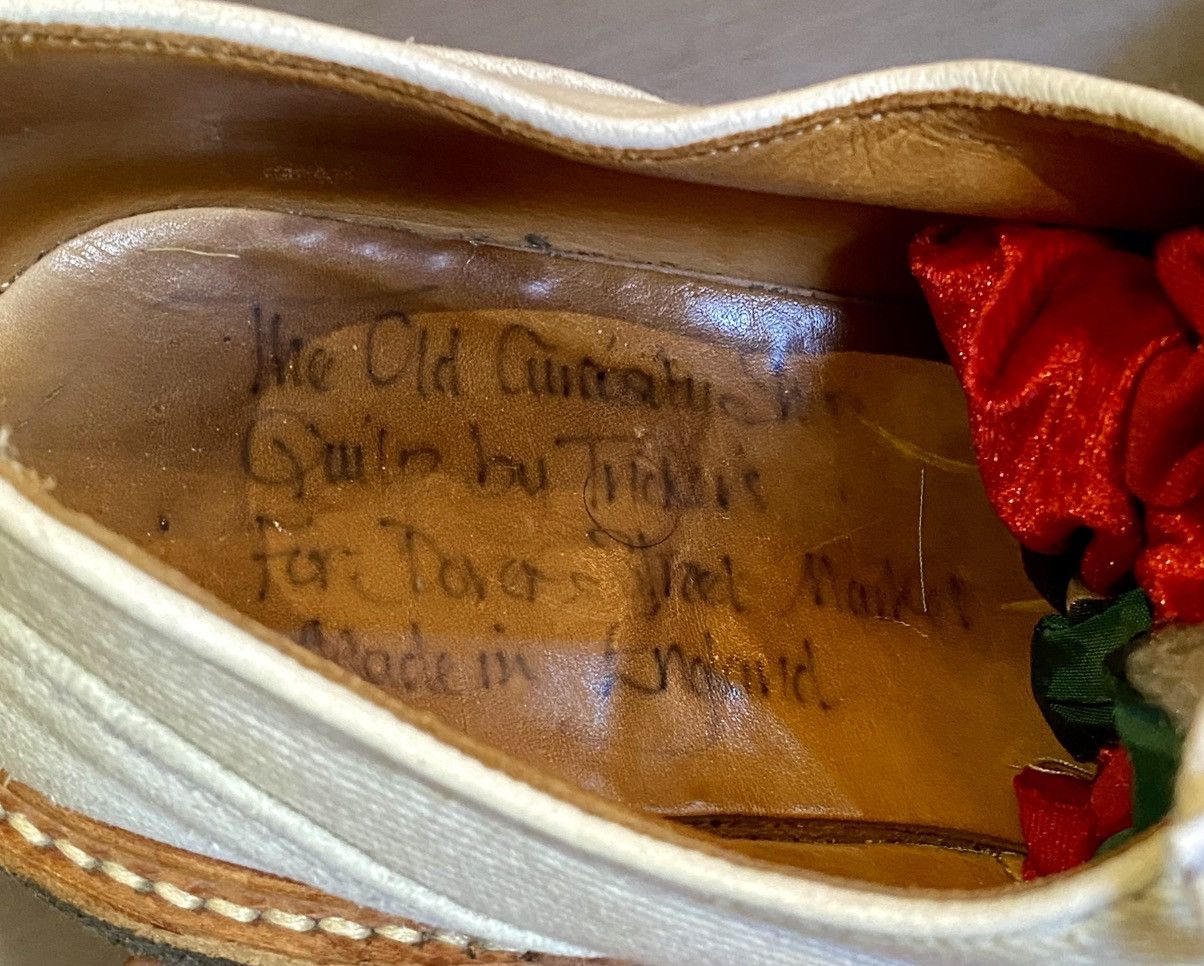 The Old Curiosity Shop
Quilp by Tricker's
For: Dover Street Market
Made in England